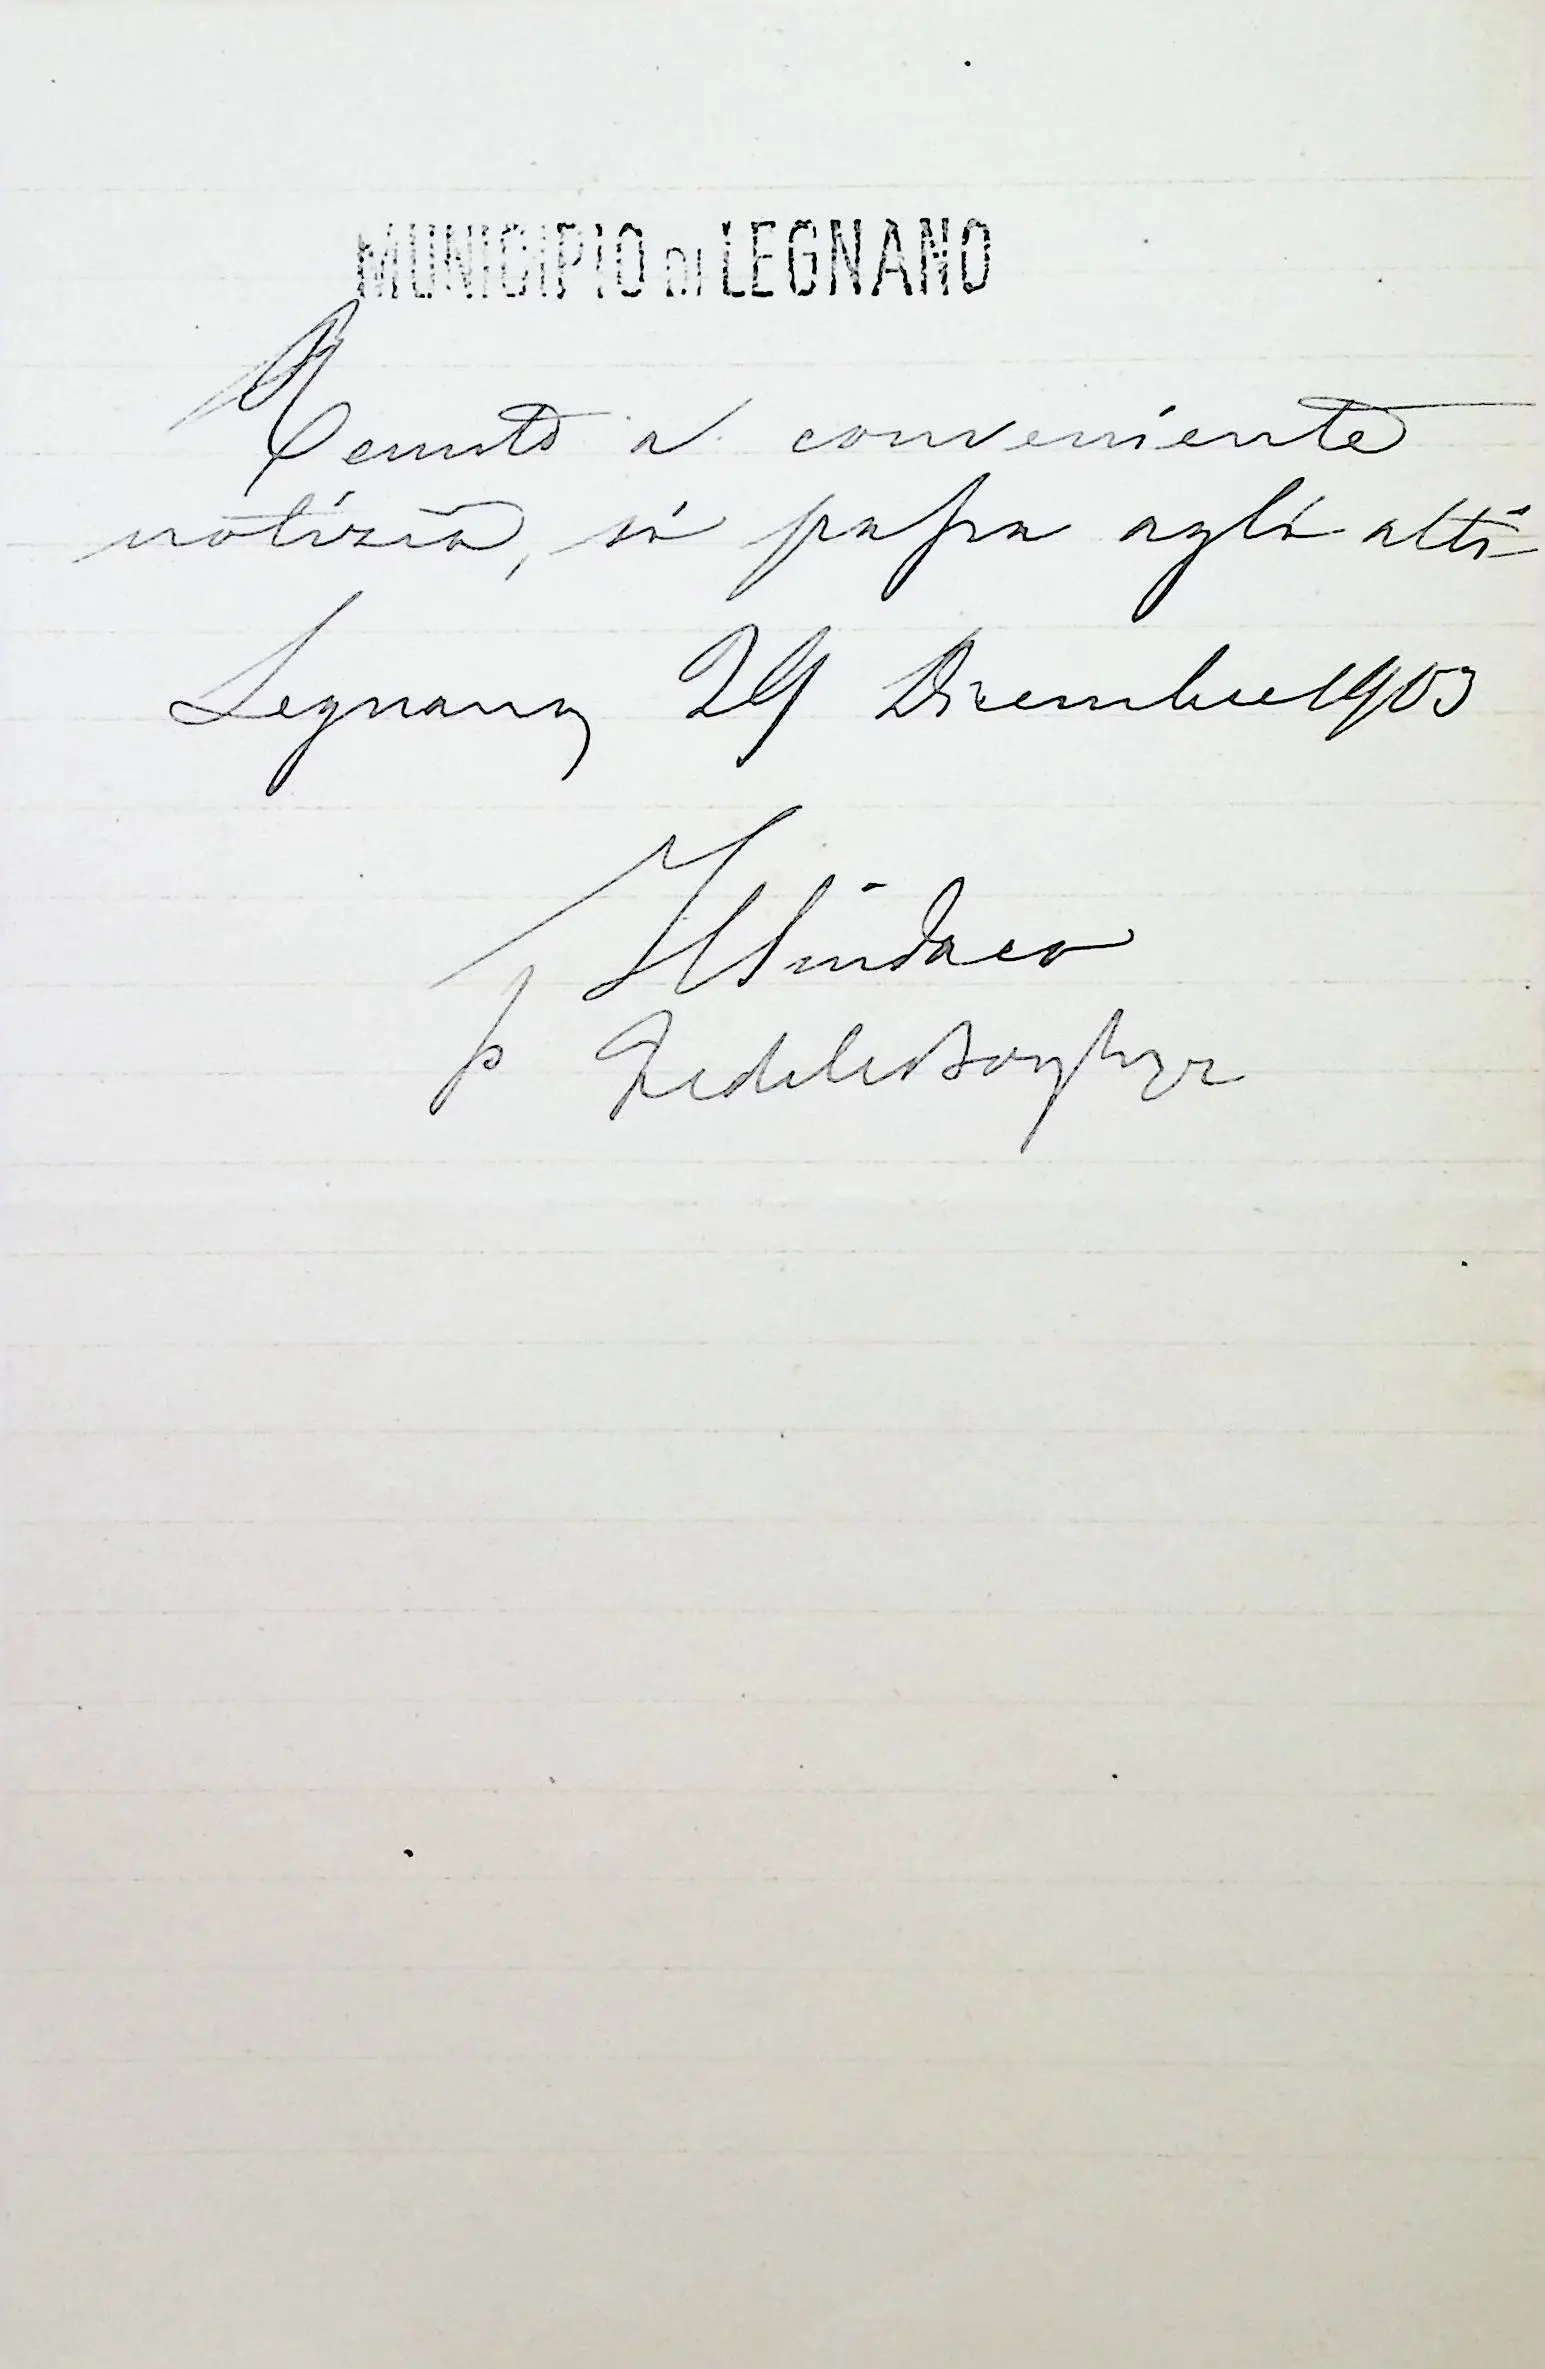 MUNICIPIO DI LEGNANO
Tenuto a conveniente
notizia, si passa agli atti
Legnano, 29 Dicembre 1903
Il Sindaco
p Fedele Borghi